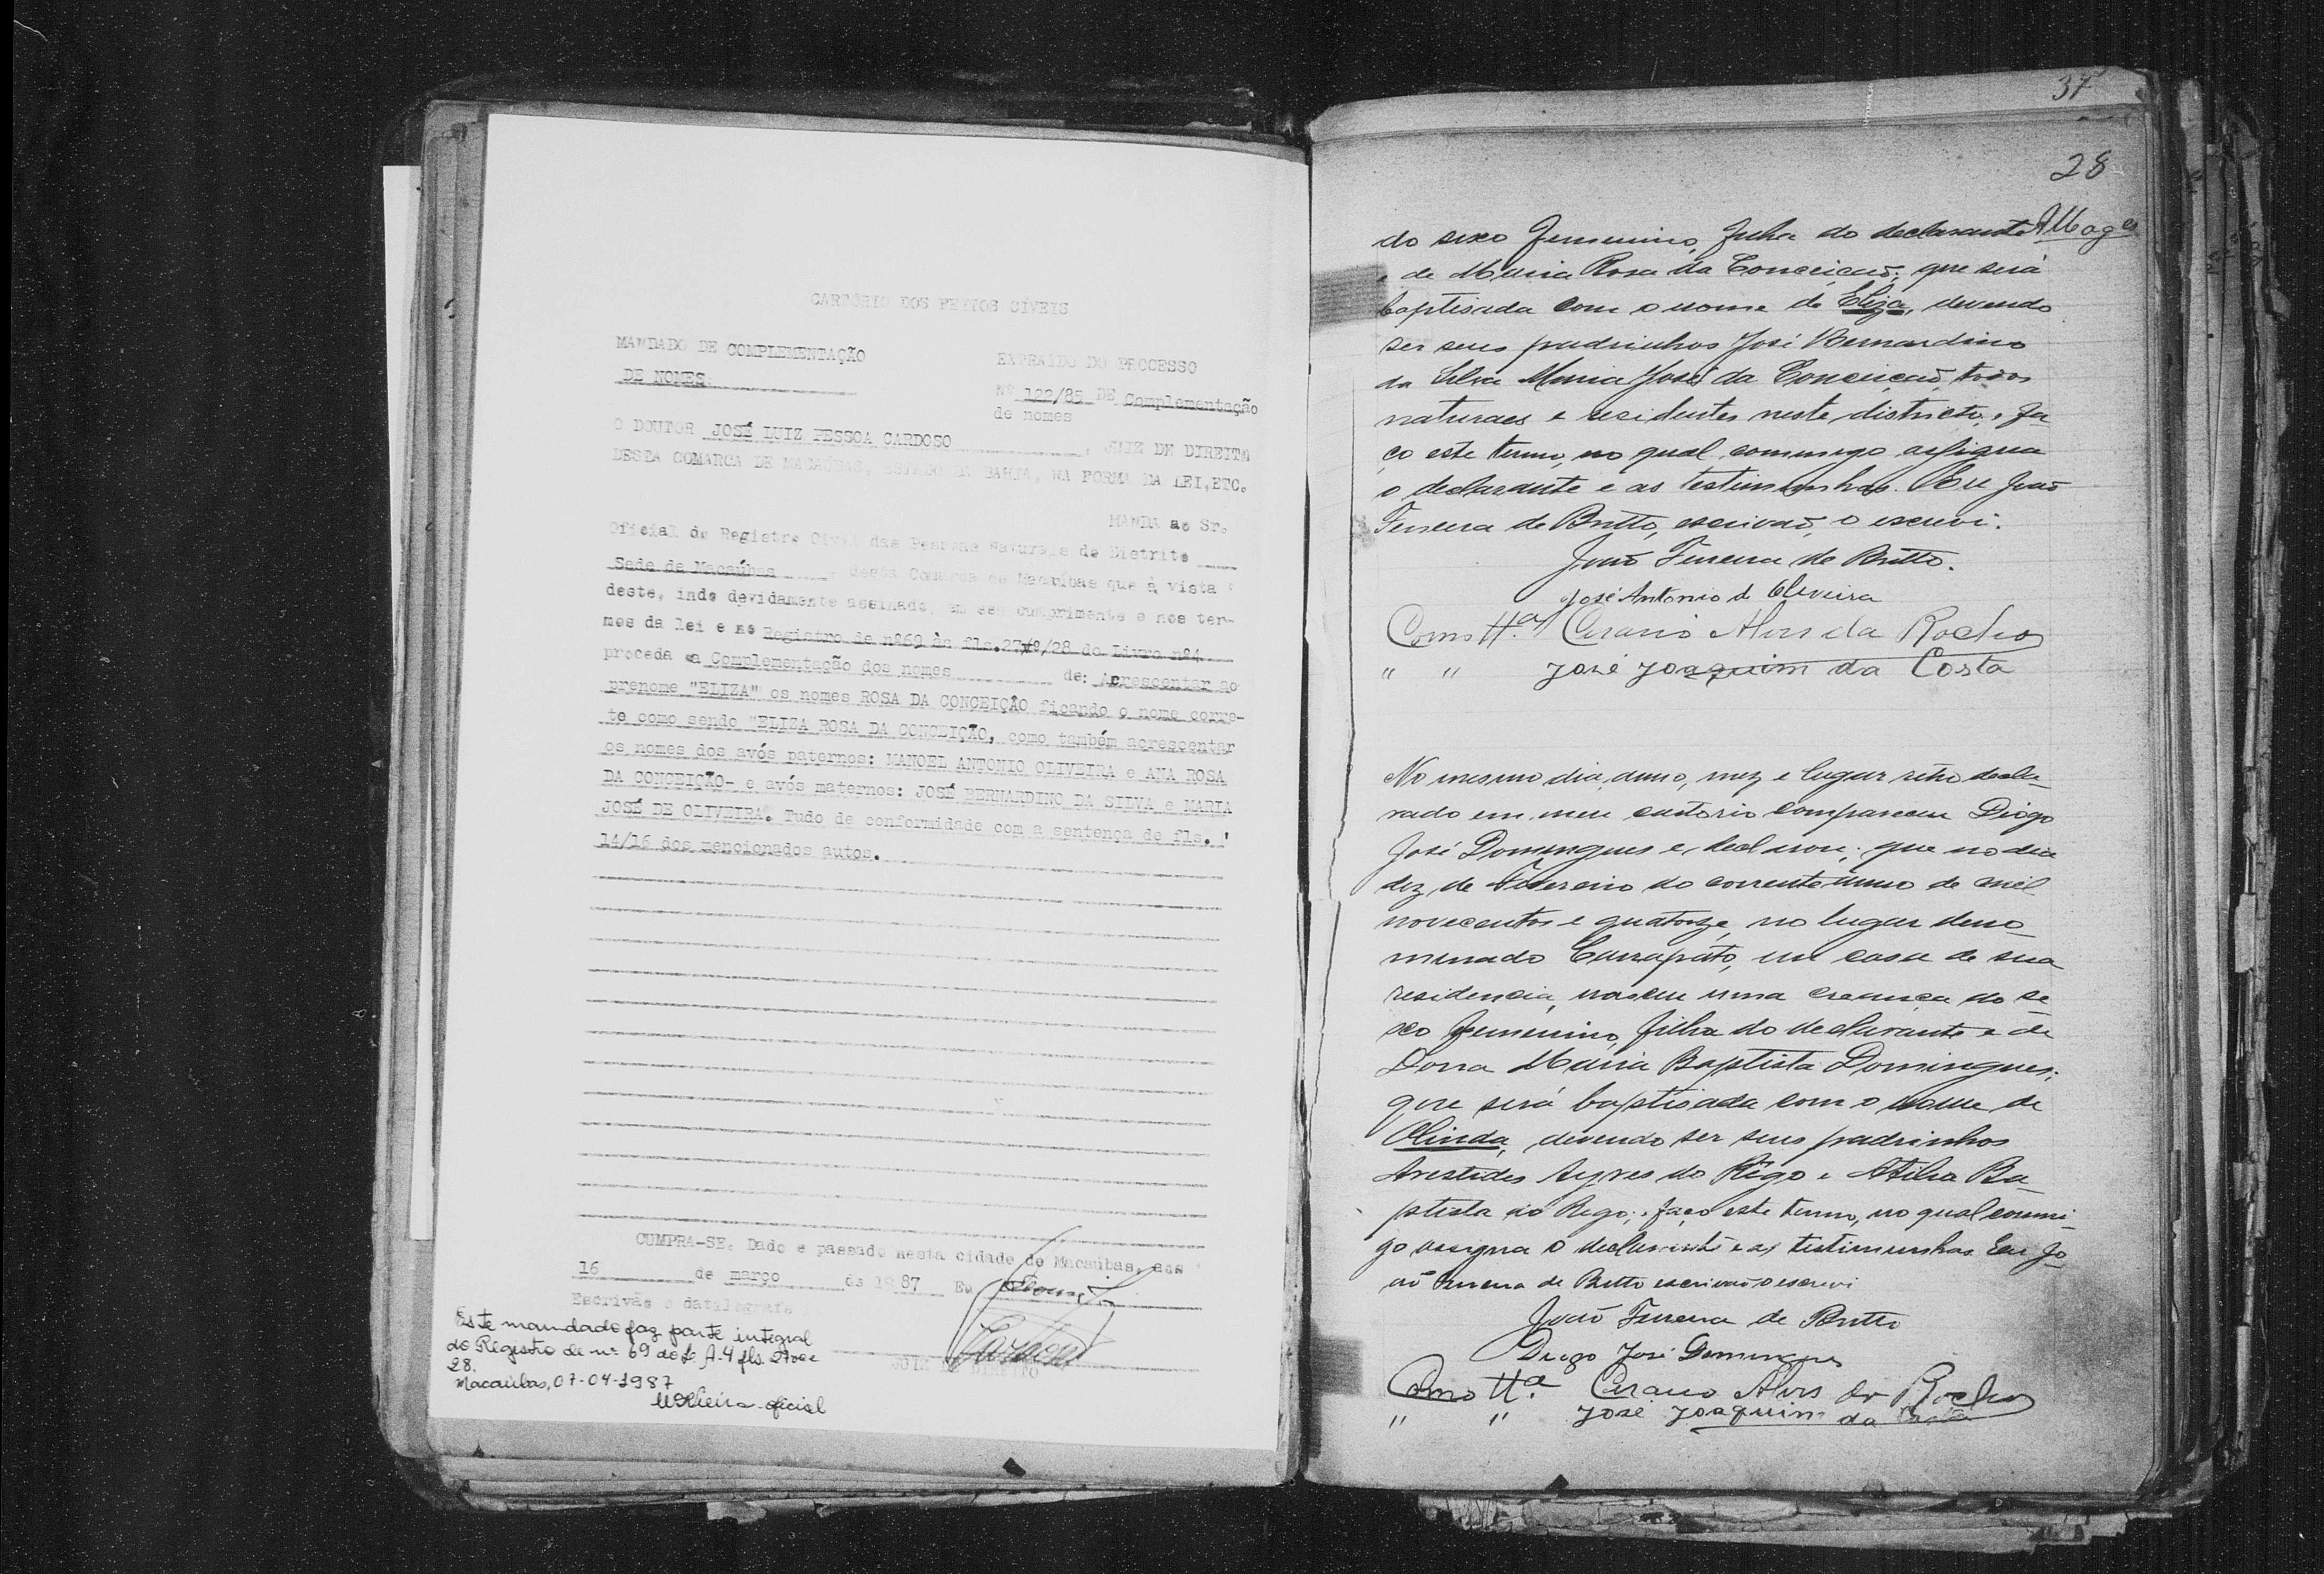 CARTÓRIO DOS FEITOS CÍVEIS
MANDADO DE COMPLEMENTAÇÃO
DE NOMES
EXTRAIDO DO PROCESSO
Nº 122/85 DE Complementação
de nomes
O DOUTOR JOSÉ LUIZ PESSOA CARDOSO, JUIZ DE DIREITO
DESTA COMARCA DE MACAÚBAS, ESTADO DA BAHIA, NA FORMA DA LEI, ETC.
MANDA ao Sr.
Oficial do Registro Civil das Pessoas Naturais do Distrito
Sede de Macaúbas, desta Comarca de Macaúbas que à vista
deste, indo devidamente assinado, em seu cumprimento e nos ter-
mos da lei e no Registro de nº69 às fls.27vº/28 do Livro nº4
proceda a Complementação dos nomes de: Acrescentar ao
prenome "ELIZA" os nomes ROSA DA CONCEIÇÃO ficando o nome corre-
to como sendo "ELIZA ROSA DA CONCEIÇÃO, como também acrescentar
os nomes dos avós paternos: MANOEL ANTONIO OLIVEIRA e ANA ROSA
DA CONCEIÇÃO- e avós maternos: JOSÉ BERNARDINO DA SILVA e MARIA
JOSÉ DE OLIVEIRA. Tudo de conformidade com a sentença de fls. '
14/16 dos mencionados autos.
CUMPRA-SE. Dado e passado nesta cidade de Macaúbas, aos
16 de março de 1987 Eu
Escrivão o datilografe
JUIZ DE DIREITO
Este mandado faz parte integral
do Registro de nº 69 do L. A-4 fls. 27v e
28.
Macaúbas, 07-04-1987
oficial
37
28
do sexo femenino, filha do declarante
e de Maria Rosa da Conceição; que será
baptisada com o nome de Eliza, devendo
ser seus padrinhos José Bernardino
da Silva Maria José da Conceição, todos
naturaes e residentes neste districto; fa
ço este termo, no qual commigo assigna
o declarante e as testimunhas. Eu João
Ferreira de Britto, escrivão, o escrevi.
João Ferreira de Britto.
José Antonio de Oliveira
Como tt.ª Alves da Rocha
" " José Joaquim da Costa
No mesmo dia, anno, mez e lugar retro decla-
rado em meu cartorio compareceu Diogo
José Domingues e declarou; que no dia
dez de Fevereiro do corrente anno de mil
novecentos e quatorze, no lugar deno
minado Carrapato, em casa de sua
residencia, nasceu uma creança do se
xo femenino, filha do declarante e de
Dona Maria Baptista Domingues;
que será baptisada com o nome de
Olinda, devendo ser seus padrinhos
Aristides Ayres do Rêgo e Ba-
ptista do Rego; faço este termo, no qual commi-
go assigna o declarante e as testimunhas. Eu Jo-
ão Ferreira de Britto escrivão o escrevi
João Ferreira de Britto
Diogo José Domingues
Como tt.ª Alves da Rocha
" " José Joaquim da Costa